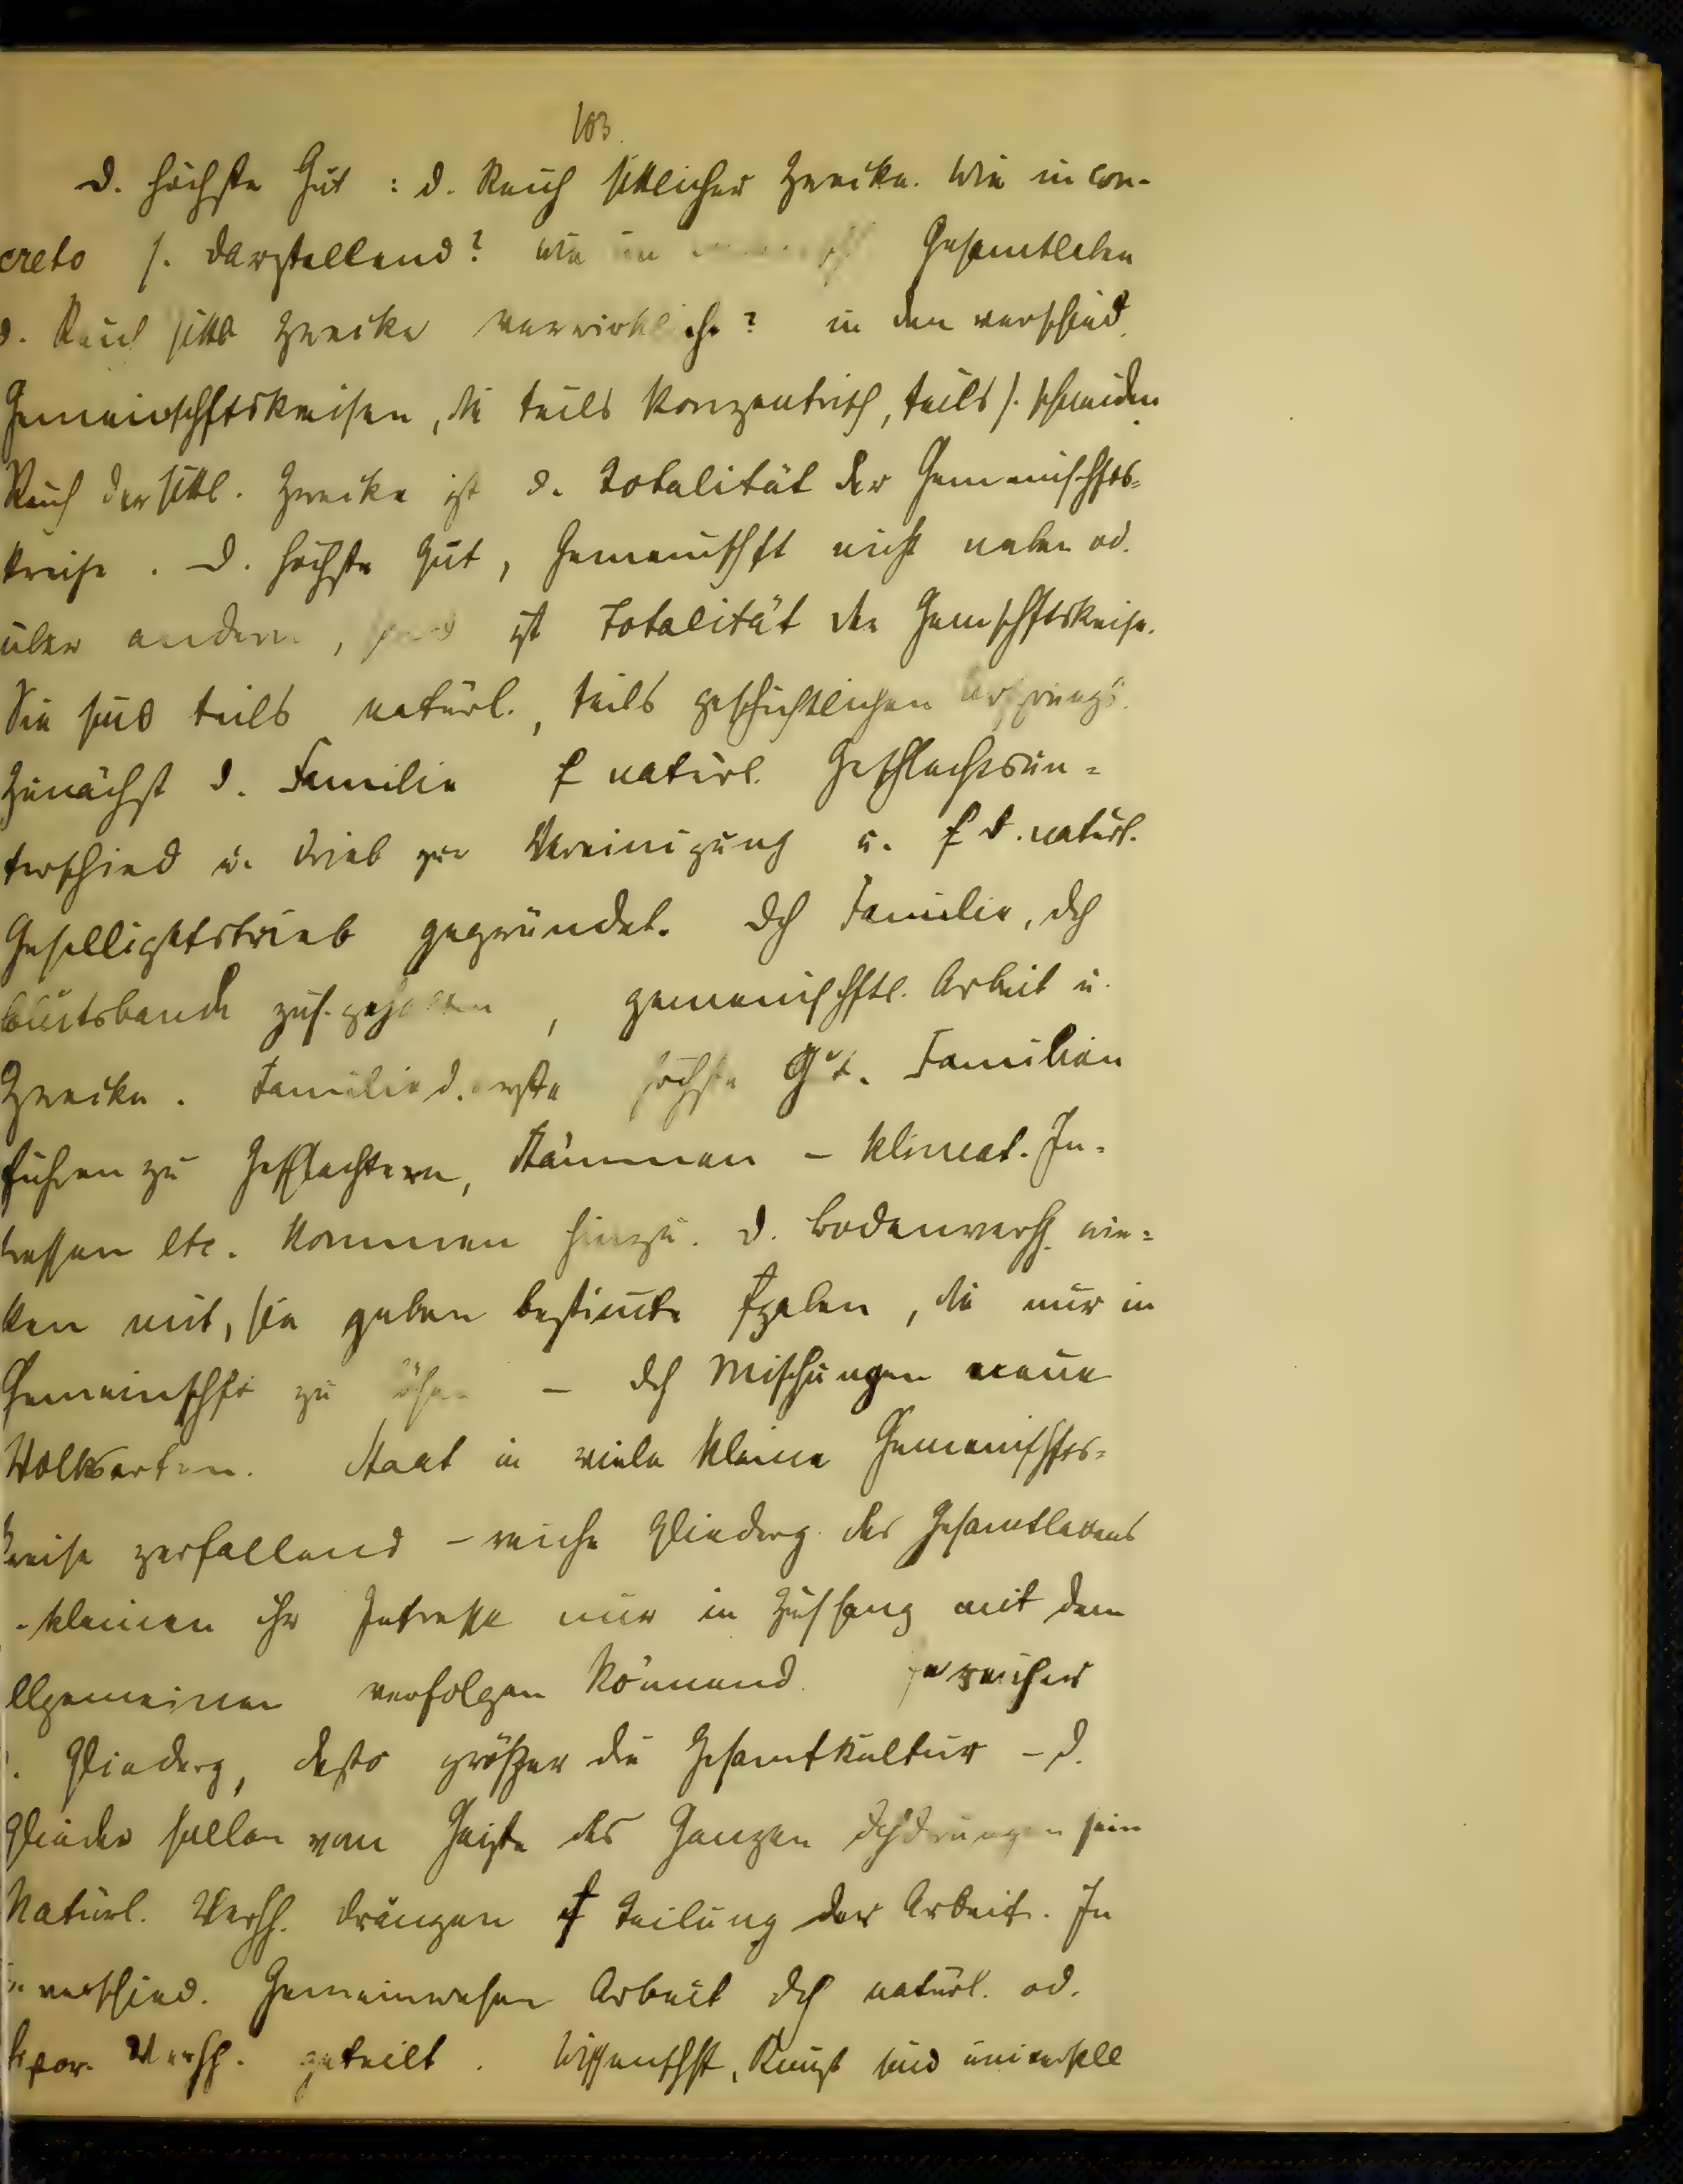 103.
D. höchste Gut : d. Reich sittlicher Zwecke. Wie in con-
creto s. darstellend? wie in Gesamtleben
d. Reich sittl Zwecke verwirkliche? in den verschied.
Gemeinschftskreisen, die teils konzentrisch, teils s. schneiden.
Reich der sittl. Zwecke ist d. Totalität der Gemeinschfts-
kreise. D. höchste Gut, Gemeinschft nicht neben od.
über andern, ist Totalität der Gemschftskreise.
Sie sind teils natürl., teils geschichtlichen Ursprungs.
Zunächst d. Familie f natürl. Geschlechtsun-
terschied u. Trieb zur Vereinigung u. f d. natürl.
Geselligktstrieb gegründet. Dch Familie, dch
Blutsbande zus.gehalten, gemeinschftl. Arbeit u.
Zwecke. Familie d. erste höchste Gut. Familien
führen zu Geschlechtern, Stämmen - klimat. In-
tressen etc. kommen hinzu. D. Bodenverh. wir-
ken mit, sie geben bestimte fgaben, die nur in
Gemeinschft zu - dch Mischungen neue
Volksarten. Staat in viele kleine Gemeinschfts-
kreise zerfallend - reiche Gliederg des Gesamtlebens
- kleinen ihr Intresse nur in Zushang mit dem
llgemeinen verfolgen könnend. je reicher
. Gliederg, desto größer die Gesamtkultur - d.
Glieder sollen vom Geiste des Ganzen dchdrungen sein
Natürl. Verhh. drängen f Teilung der Arbeit. In
verschied. Gemeinwesen Arbeit dch natürl. od.
Verhh. geteilt. Wissenschft, Kunst sind universell